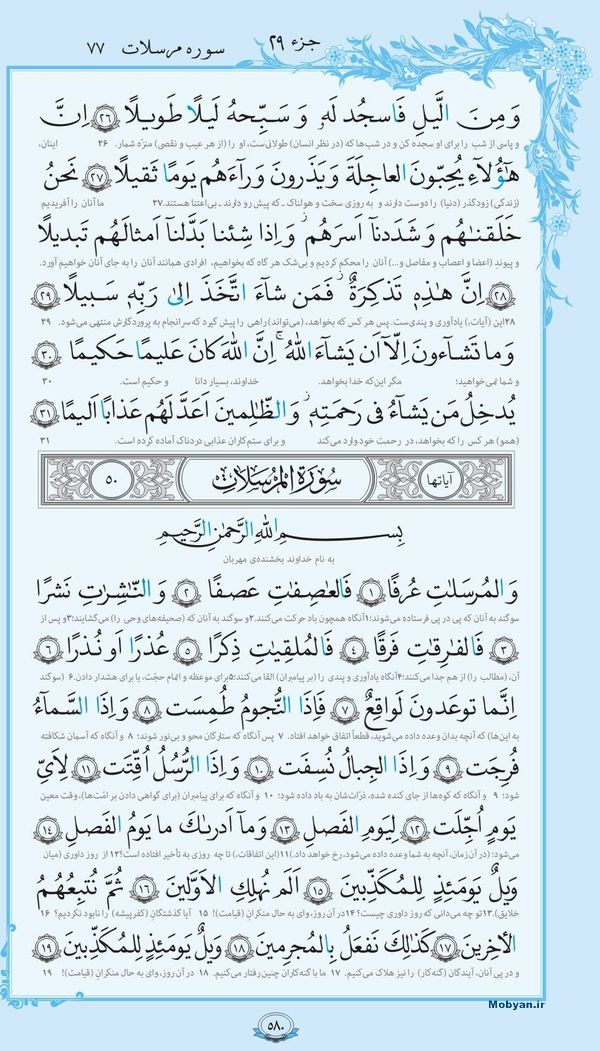 جزء ۲۹
سوره مرسلات ۷۷
وَ مِنَ الَّیلِ فَاسجُد لَهٗ وَ سَبِّحهُ لَیلًا طَویلًا ۲۶ اِنَّ
و پاسی از شب را برای او سجده کن و در شب‌ها که (در نظر انسان) طولانی‌ست، او را (از هر عیب و نقصی) منزّه شمار. ۲۶ اینان،
هٰؤُلاءِ یُحِبّونَ العاجِلَةَ وَ یَذَرونَ وَراءَهُم یَومًا ثَقیلًا ۲۷ نَحنُ
(زندگی) زودگذر (دنیا) را دوست دارند و به روزی سخت و هولناک ـ که پیش رو دارند ـ بی‌اعتنا هستند.۲۷ ما آنان را آفریدیم
خَلَقنٰهُم وَ شَدَدنا اَسرَهُم وَ اِذا شِئنا بَدَّلنا اَمثالَهُم تَبدیلًا
و پیوندِ (اعضا و اعصاب و مفاصل و...) آنان را محکم کردیم و بی‌شک هر گاه که بخواهیم، افرادی همانند آنان را به جای آنان خواهیم آورد.
۲۸ اِنَّ هٰذِهٖ تَذکِرَةٌ فَمَن شاءَ اتَّخَذَ اِلیٰ رَبِّهٖ سَبیلًا ۲۹
۲۸این (آیات)، یادآوری و پندی‌ست. پس هر کس که بخواهد، (می‌تواند) راهی را پیش گیرد که سرانجام به پروردگارش منتهی می‌شود. ۲۹
وَ ما تَشاءونَ اِلّا اَن یَشاءَ اللهُ اِنَّ اللهَ کانَ عَلیمًا حَکیمًا ۳۰
و شما نمی‌خواهید؛ مگر این‌که خدا بخواهد. خداوند، بسیار دانا و حکیم است. ۳۰
یُدخِلُ مَن یَشاءُ فی رَحمَتِهٖ وَ الظّالِمینَ اَعَدَّ لَهُم عَذابًا اَلیمًا ۳۱
(همو) هر کس را که بخواهد، در رحمت خود وارد می‌کند و برای ستم‌کاران عذابی دردناک آماده کرده است. ۳۱
آیاتها سُورَةُ المُرسَلات ۵۰
بِسمِ اللهِ الرَّحمٰنِ الرَّحیمِ
به نام خداوند بخشنده‌ی مهربان
وَ المُرسَلاتِ عُرفًا ۱ فَالعٰصِفاتِ عَصفًا ۲ وَ النّٰشِراتِ نَشرًا
سوگند به آنان که پی در پی فرستاده می‌شوند؛۱آنگاه همچون باد حرکت می‌کنند.۲و سوگند به آنان که (صحیفه‌های وحی را) می‌گشایند؛۳و پس از
۳ فَالفارِقاتِ فَرقًا ۴ فَالمُلقِیاتِ ذِکرًا ۵ عُذرًا اَو نُذرًا ۶
آن، (مطالب را) از هم جدا می‌کنند؛۴آنگاه یادآوری و پندی را (بر پیامبران) القا می‌کنند؛۵برای موعظه و اتمام حجّت، یا برای هشدار دادن.۶ (سوگند
اِنَّما توعَدونَ لَواقِعٌ ۷ فَاِذَا النُّجومُ طُمِسَت ۸ وَ اِذَا السَّماءُ
به این‌ها) که آنچه بدان وعده داده می‌شوید، قطعاً اتفاق خواهد افتاد. ۷ پس آنگاه که ستارگان محو و بی‌نور شوند؛ ۸ و آنگاه که آسمان شکافته
فُرِجَت ۹ وَ اِذَا الجِبالُ نُسِفَت ۱۰ وَ اِذَا الرُّسُلُ اُقِّتَت ۱۱ لِاَیِّ
شود؛ ۹ و آنگاه که کوه‌ها از جای کنده شده، ذرّات‌شان به باد داده شود؛ ۱۰ و آنگاه که برای پیامبران (برای گواهی دادن بر امّت‌ها)، وقت معین
یَومٍ اُجِّلَت ۱۲ لِیَومِ الفَصلِ ۱۳ وَ ما اَدرٰىكَ ما یَومُ الفَصلِ ۱۴
می‌شود؛ (در آن زمان، آنچه به شما وعده داده می‌شود، رخ خواهد داد.)۱۱(این اتفاقات،) تا چه روزی به تأخیر افتاده است؟۱۲ از روز داوری (میان
وَیلٌ یَومَئِذٍ لِلمُکَذِّبینَ ۱۵ اَلَم نُهلِکِ الاَوَّلینَ ۱۶ ثُمَّ نُتبِعُهُمُ
خلایق).۱۳تو چه می‌دانی که روز داوری چیست؟ ۱۴در آن روز، وای به حال منکرانِ (قیامت)! ۱۵ آیا گذشتگانِ (کفرپیشه) را نابود نکردیم؟ ۱۶
الآخِرینَ ۱۷ کَذٰلِكَ نَفعَلُ بِالمُجرِمینَ ۱۸ وَیلٌ یَومَئِذٍ لِلمُکَذِّبینَ ۱۹
و در پی آنان، آیندگان (گنه‌کار) را نیز هلاک می‌کنیم. ۱۷ ما با گنه‌کاران چنین رفتار می‌کنیم. ۱۸ در آن روز، وای به حال منکرانِ (قیامت)! ۱۹
Mobyan.ir
۵۸۰